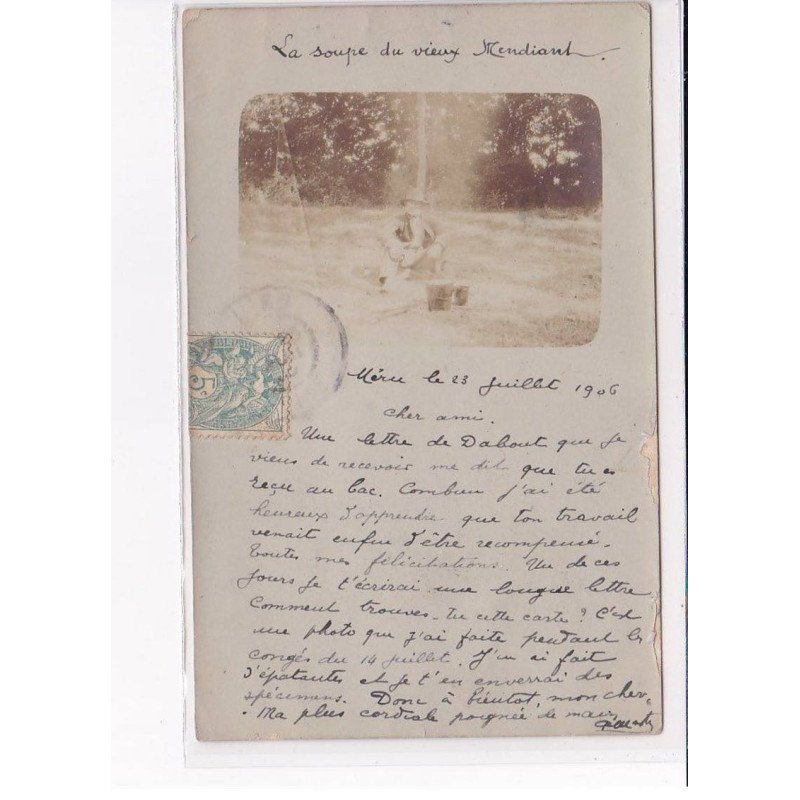 La soupe du vieux Mendiant.
5
Méru le 23 Juillet 1906
Cher ami.
Une lettre de Dabout que je
viens de recevoir me dit que tu es
reçu au bac. Combien j'ai été
heureux d'apprendre que ton travail
venait enfin d'être recompensé.
Toutes mes félicitations. Un de ces
jours je t'écrirai une longue lettre
Comment trouves-tu cette carte? C'est
une photo que j'ai faite pendant les
congés du 14 Juillet. J'en ai fait
d'épatantes et je t'en enverrai des
spécimens. Donc à bientot, mon cher,
Ma plus cordiale poignée de main